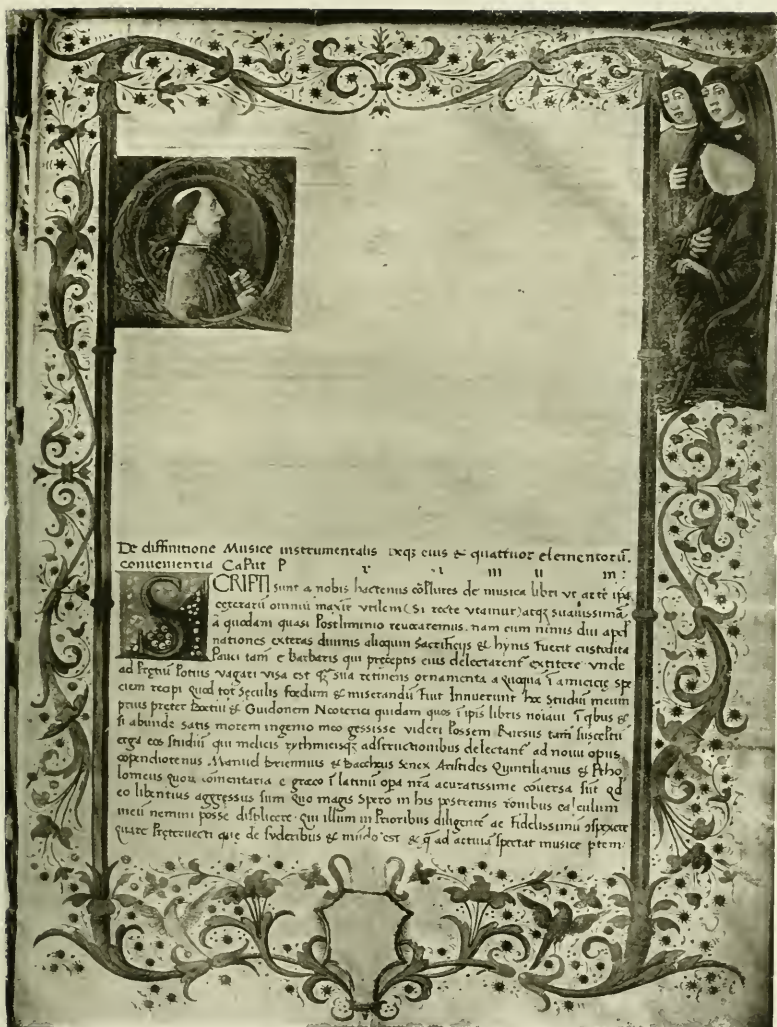 De diffinitione Musice instrumentalis eius & quattuor elementorū.
convenientia CaPut P r i m u m :
SCRIPTI sunt a nobis hactenus cōplures de musica libri vt artē ipā
ceterarū omniū maxīe vtilem (Si recte vtamur) atqꝫ suauissimā
a quodam quasi Postliminio reuocaremus. nam cum nimis diu apd
nationes exteras diuinis alioquin Sacrificijs & hynis Fuerit custodita
Pauci tam̄ e barbaris qui preceptis eius delectarent̄ extitere vnde
ad Potius vagari visa est sua retinens ornamenta a quoquā ī amicicie spe
ciem recapi Quod tot Seculis Foedum & miserandū Fuit Innuerunt hoc Studiū meum
prius preter Boetiū & Guidonem Neoterici quidam quos ī ipīs libris notaui ī qbus &
si abunde satis morem ingenio meo gessisse videri Possem Rursus tam̄ susceptū
erga eos studiū qui melicis rythmicisqꝫ adstructionibus delectant̄ ad nouū opus
copendiotenus Manuel briennius & baccheus Senex Aristides Quintilianus & Ptho
lomeus quoꝝ comentaria e graeco ī latinū opa nrā acuratissime couersa sūt qd
eo libentius aggressus sum Quo magis Spero in his postremis calculum
meū nemini posse displicere qui illum in Prioribus diligentē ac Fidelissimū
quare Preteruecti que de syderibus & mūdo est & q̄ ad actiuā spectat musice ptem: